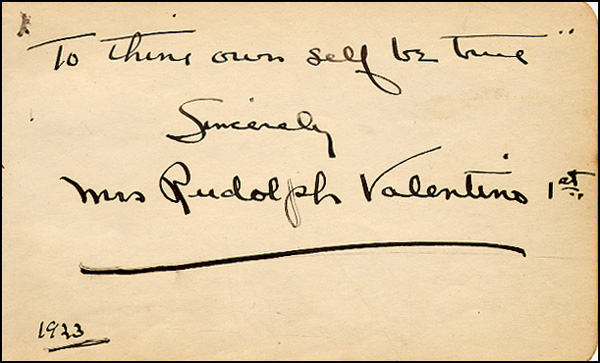 To thine own self be true"
Sincerely
Mrs Rudolph Valentino 1st.
1923